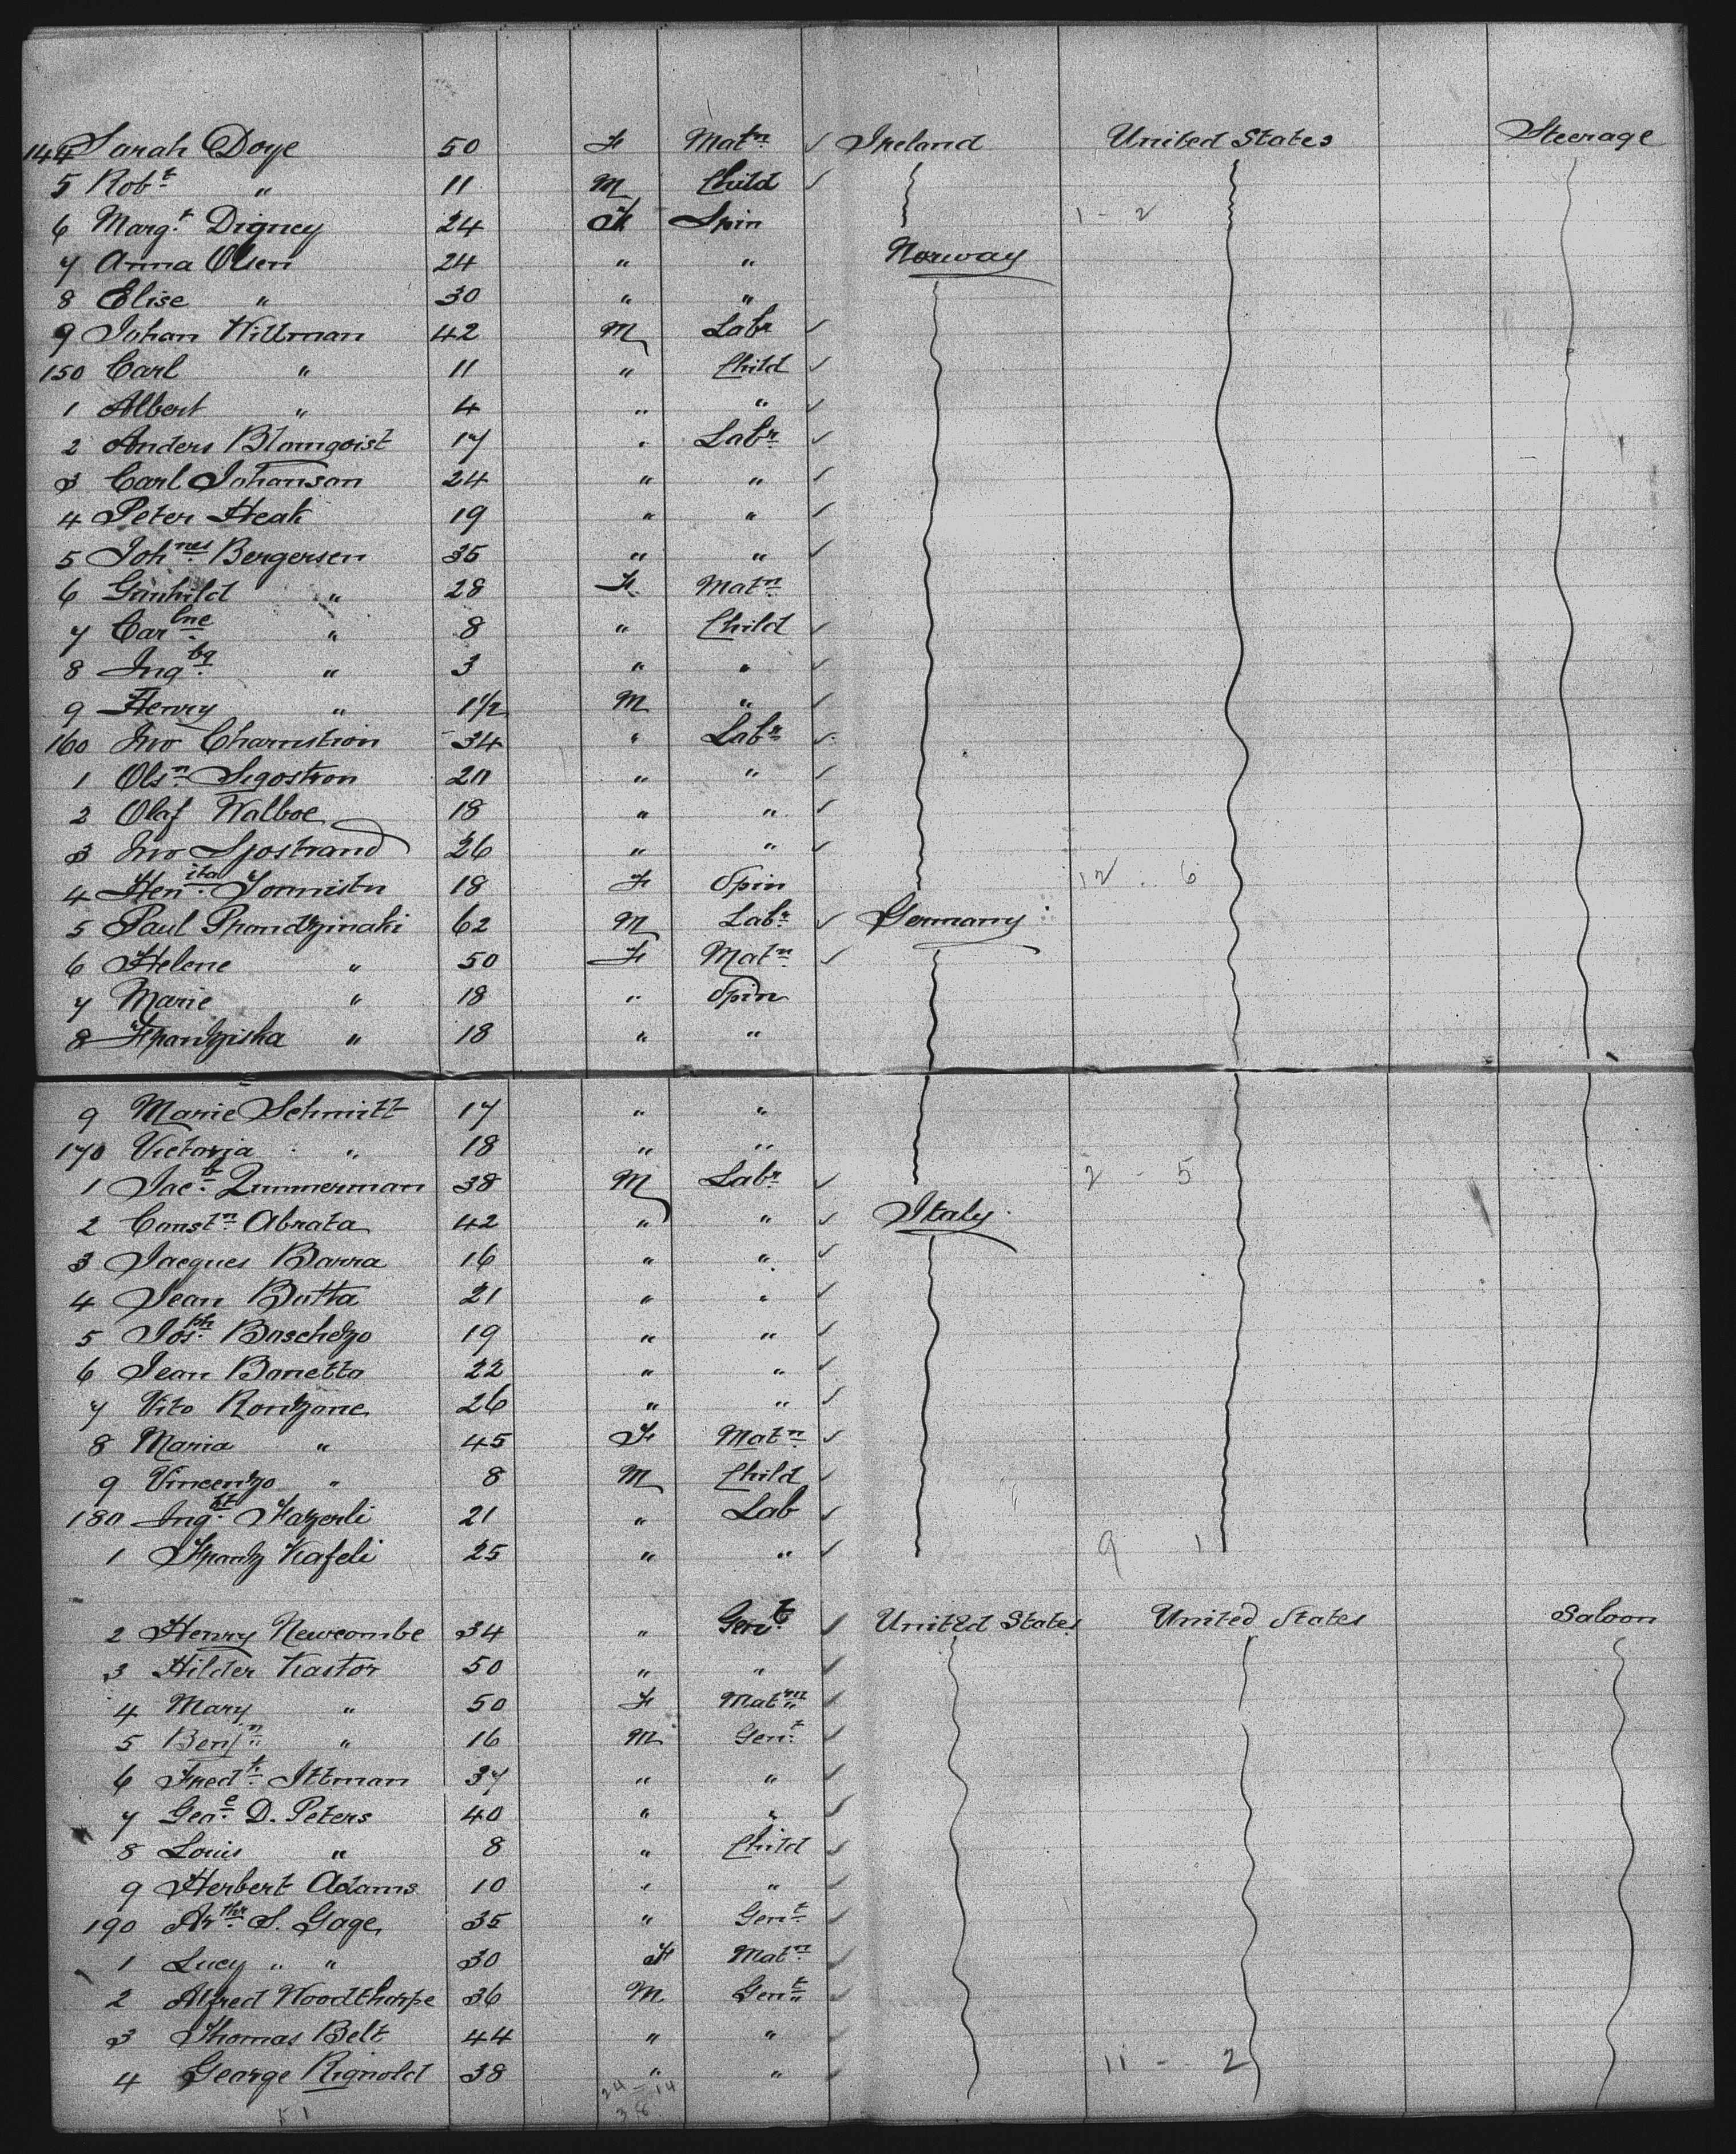 144 Sarah Doye 50 F Matn ✓ Ireland United States Steerage
5 Robt " 11 M Child ✓
6 Margt Digney 24 F Spin 1 - 2
7 Anna Olsen 24 " " Norway
8 Elise " 30 " "
9 Johan Willman 42 M Labr ✓
150 Carl " 11 " Child ✓
1 Albert " 4 " " ✓
2 Anders Blomqoist 17 " Labr ✓
3 Carl Johanson 24 " " ✓
4 Peter Heak 19 " " ✓
5 Johnes Bergersen 35 " " ✓
6 Gunhild " 28 F Matn
7 Carlne " 8 " Child ✓
8 Ingbg " 3 " " ✓
9 Henry " 1½ M " ✓
160 Jno Charnstion 34 " Labr ✓
1 Olsn Segostron 20 " " ✓
2 Olaf Walboe 18 " " ✓
3 Jno Sjostrand 26 " " ✓
4 Henita 18 F Spin 12 . 6
5 Paul 62 M Labr ✓ Germany
6 Helene " 50 F Matn ✓
7 Marie " 18 " Spin
8 Frantziska " 18 " "
9 Marie Schmitt 17 " "
170 Victoria " 18 " "
1 Jacb Zimmerman 38 M Labr ✓ 2 - 5
2 Constn Abrata 42 " " ✓ Italy
3 Jacques Barra 16 " " ✓
4 Jean Butta 21 " " ✓
5 Josph Baschezo 19 " " ✓
6 Jean Banetta 22 " " ✓
7 Vito Rontzone 26 " " ✓
8 Maria " 45 F Matn ✓
9 Vincentzo " 8 M Child ✓
180 21 " Lab ✓
1 Frantz Kafeli 25 " " ✓ 9 1
2 Henry Newcombe 34 " Gent ✓ United States United States Saloon
3 Hilder Kastor 50 " " ✓
4 Mary " 50 F Matrn ✓
5 Benjn " 16 M Gent ✓
6 Fredk Ittman 37 " " ✓
7 Geoe D. Peters 40 " " ✓
8 Louis " 8 " Child ✓
9 Herbert Adams 10 " " ✓
190 Arthr S. Gage 35 " Gent ✓
1 Lucy " " 30 F Matn ✓
2 Alfred Woodthorpe 36 M Gent ✓
3 Thomas Belt 44 " " ✓
4 George Rignold 38 " " ✓ 11 - 2
51 24 - 14
38